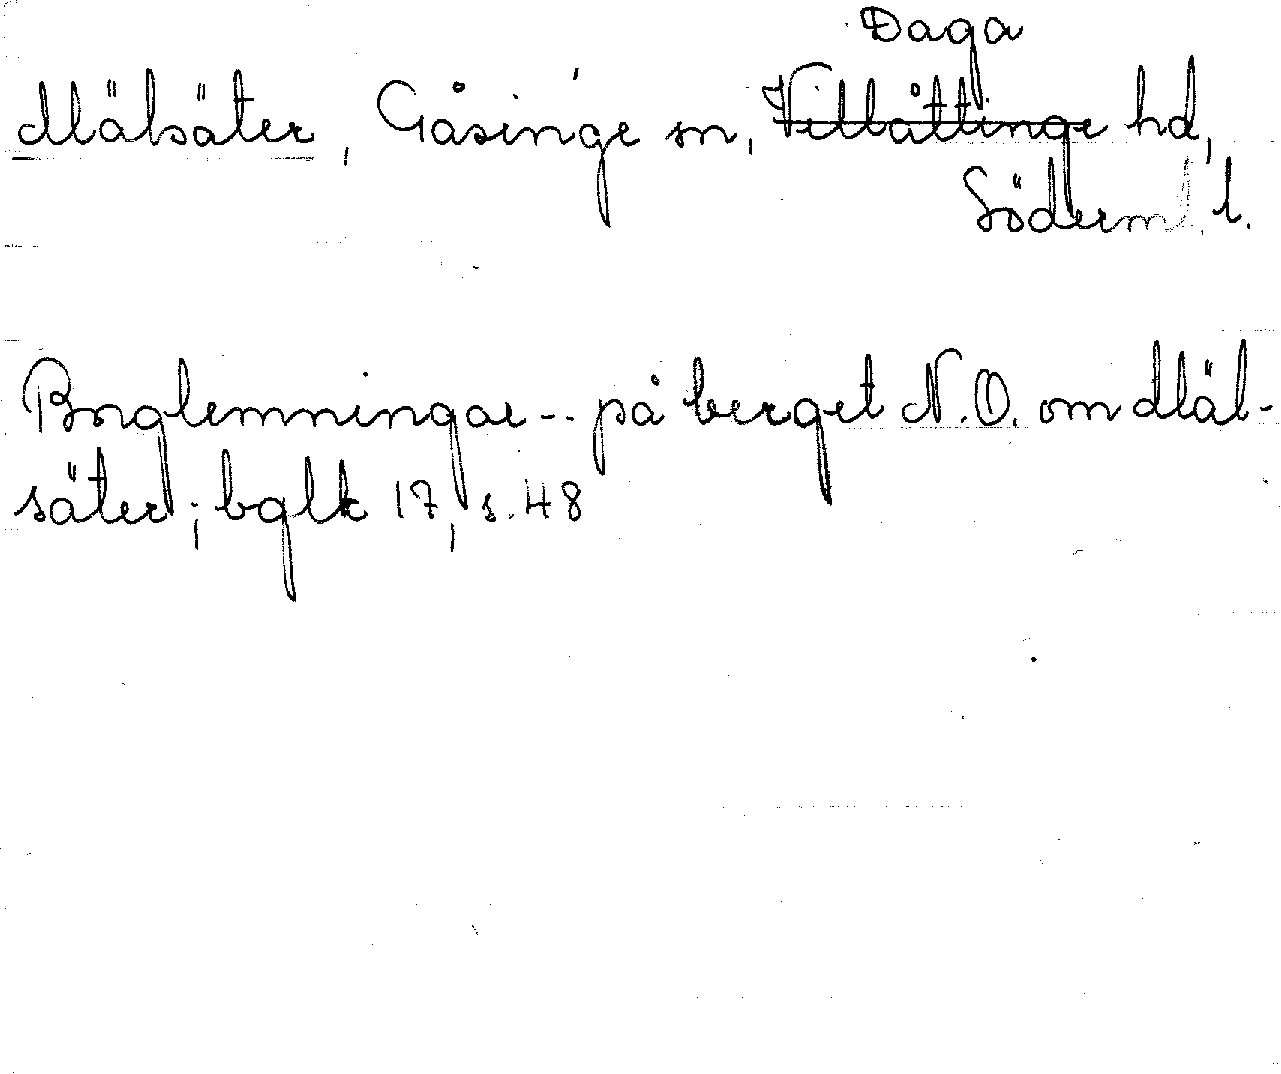 Daga
Mälsäter, Gåsinge sn, Villåttinge hd,
Söderml. l.
Borglemningar -- på berget N.O. om Mäl-
säter; bglk 17, s. 48